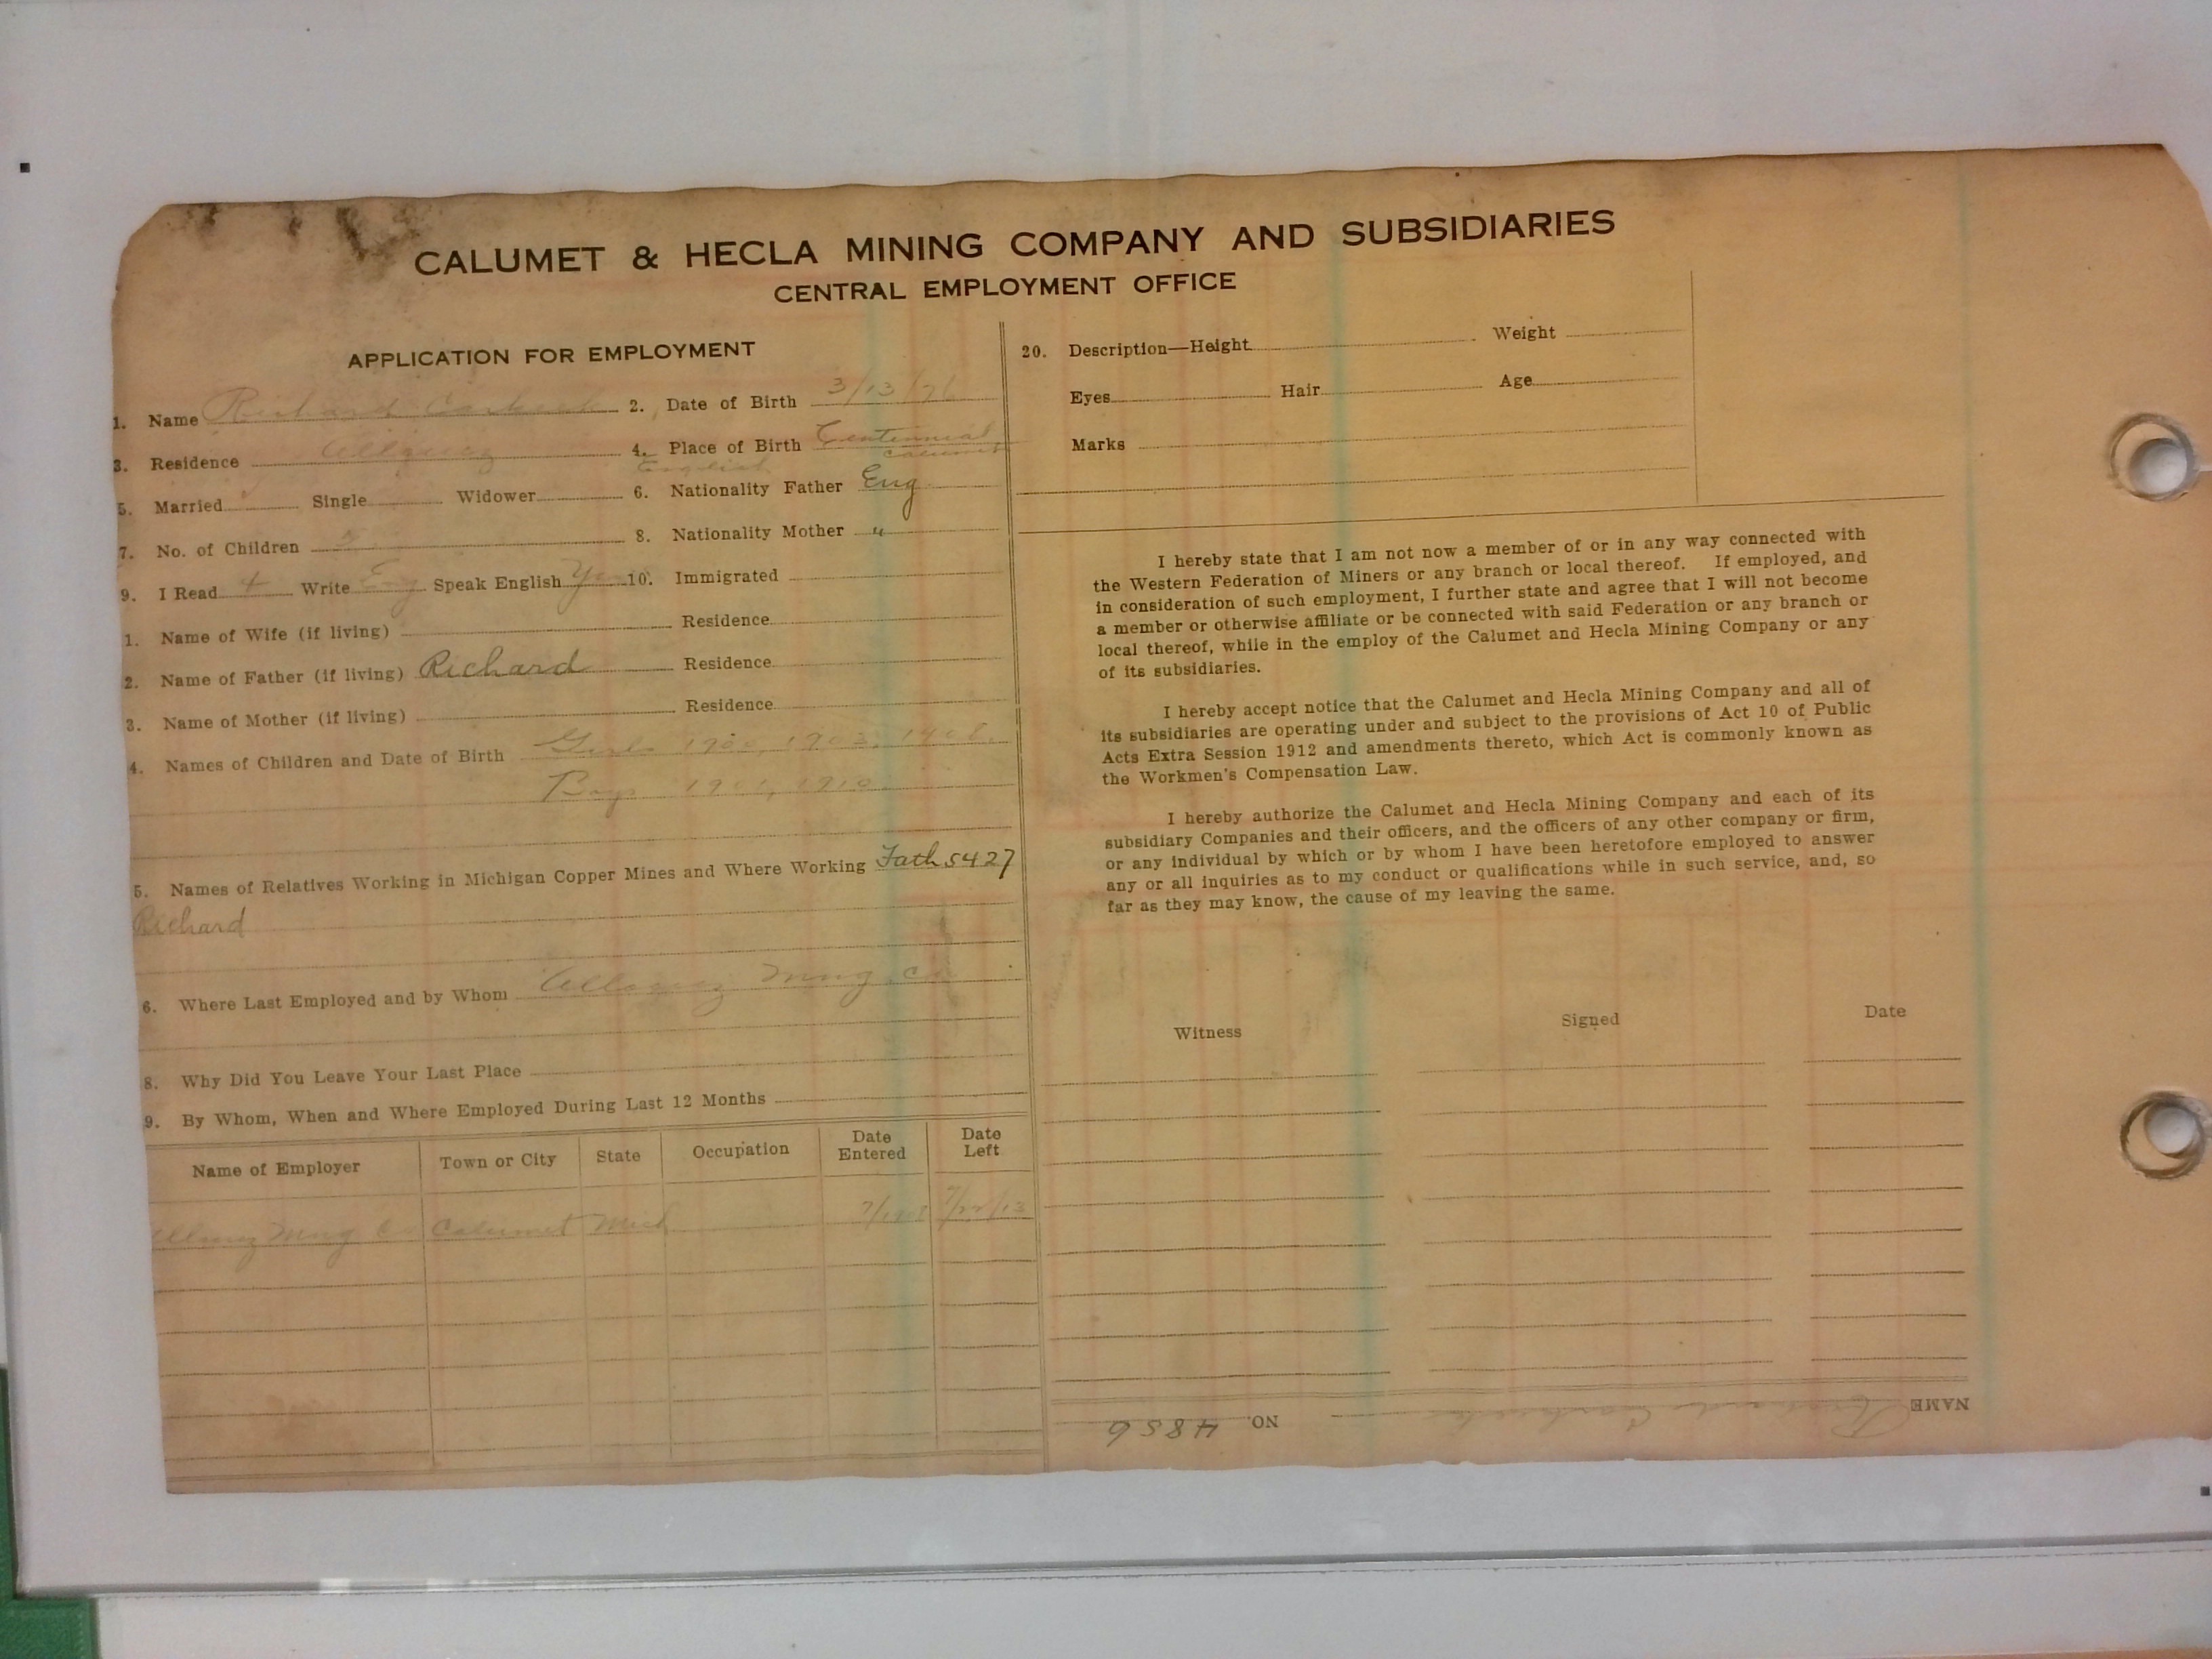 CALUMET & HECLA MINING COMPANY AND SUBSIDIARIES
CENTRAL EMPLOYMENT OFFICE
APPLICATION FOR EMPLOYMENT
1. Name Richard 2. Date of Birth 3/13/76
3. Residence Allouez 4. Place of Birth Centennial
Calumet
English
5. Married Single Widower 6. Nationality Father Eng
7. No. of Children 5 8. Nationality Mother "
9. I Read + Write Eng Speak English Yes 10. Immigrated
1. Name of Wife (if living) Residence
2. Name of Father (if living) Richard Residence
3. Name of Mother (if living) Residence
4. Names of Children and Date of Birth Girls 1900, 1903, 1908.
Boys 1901, 1910
5. Names of Relatives Working in Michigan Copper Mines and Where Working Fath 5427
Richard
6. Where Last Employed and by Whom Allouez Mng. Co
8. Why Did You Leave Your Last Place
9. By Whom, When and Where Employed During Last 12 Months
Name of Employer Town or City State Occupation Date Entered Date Left
Allouez Mng Co Calumet Mich 7/22/13
20. Description—Height Weight
Eyes Hair Age
Marks
I hereby state that I am not now a member of or in any way connected with
the Western Federation of Miners or any branch or local thereof. If employed, and
in consideration of such employment, I further state and agree that I will not become
a member or otherwise affiliate or be connected with said Federation or any branch or
local thereof, while in the employ of the Calumet and Hecla Mining Company or any
of its subsidiaries.
I hereby accept notice that the Calumet and Hecla Mining Company and all of
its subsidiaries are operating under and subject to the provisions of Act 10 of Public
Acts Extra Session 1912 and amendments thereto, which Act is commonly known as
the Workmen's Compensation Law.
I hereby authorize the Calumet and Hecla Mining Company and each of its
subsidiary Companies and their officers, and the officers of any other company or firm,
or any individual by which or by whom I have been heretofore employed to answer
any or all inquiries as to my conduct or qualifications while in such service, and, so
far as they may know, the cause of my leaving the same.
Witness Signed Date
NAME Richard NO. 4856